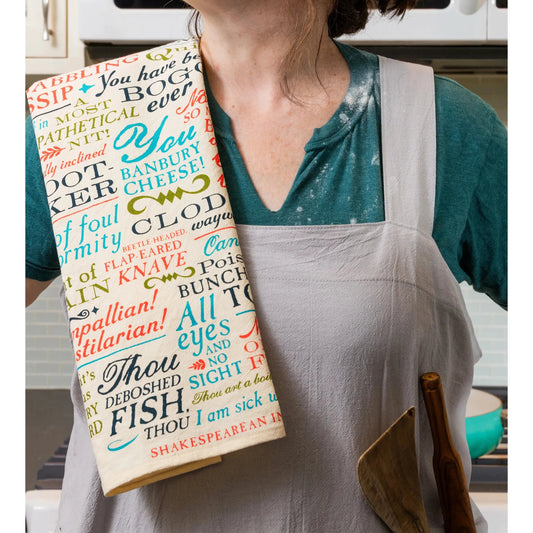 GABBLING
GOSSIP
QU
You have b
BOG
ever
in
A
MOST
PATHETICAL
NIT!
SO
lly inclined
You
BANBURY
CHEESE!
OOT-
KER
of foul
ormity
CLOD
wayw
BEETLE-HEADED,
FLAP-EARED
KNAVE
Can
Pois
BUNCH
TO
t of
AIN
mpallian!
stilarian!
All
eyes
AND
NO
SIGHT
Thou
DEBOSHED
FISH,
THOU
Thou art a boi
I am sick w
SHAKESPEAREAN IN